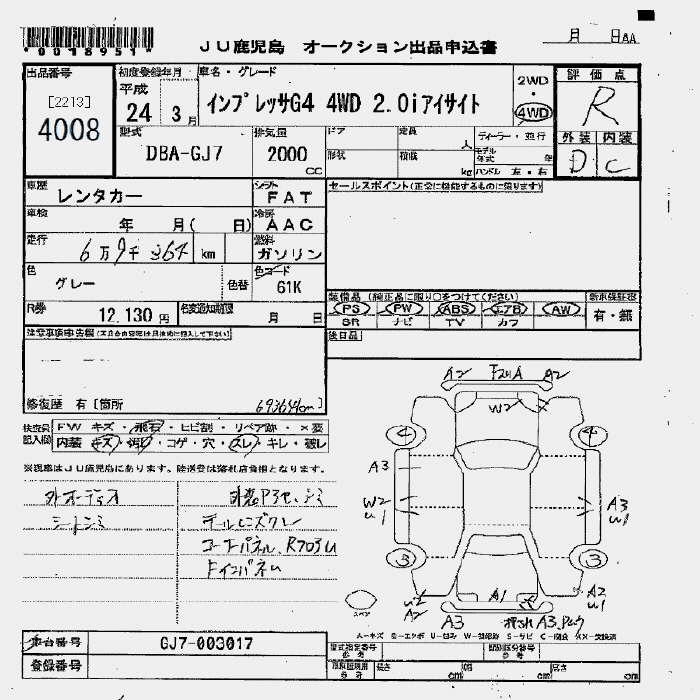 *0018951*
JU鹿児島 オークション出品申込書
月 日AA
出品番号
[2213]
4008
初度登録年月
平成
24 3月
車名・グレード
インプレッサG4 4WD 2.0iアイサイト
2WD
・
4WD
評価点
R
外装 内装
D C
型式
DBA-GJ7
排気量
2000
CC
ドア
定員
人
形状
積載
kg
ディーラー・並行
モデル年式 年
ハンドル 左・右
車歴
レンタカー
シフト
FAT
車検
年 月( 日)
冷房
AAC
走行
6万9千364 km
燃料
ガソリン
色
グレー
色替
色コード
61K
R券
12,130円
名変通知期限
月 日
セールスポイント(正常に機能するものに限ります)
装備品 (純正品に限り○をつけてください)
新車保証書
PS PW ABS エアB AW
SR ナビ TV カワ
有・無
後日品
注意事項申告欄
修復歴 有 [箇所
69364km]
検査員記入欄
FW キズ・飛石・ヒビ割・リペア跡・×要
内装 キズ・汚れ・コゲ・穴・スレ・キレ・破レ
※現車はJU鹿児島にあります。陸送費は落札店負担となります。
外オーディオ
シートシミ
テールレンズワレ
コーナーパネル、R7031
A2 A2
W2
4 4
A3
W2
U1
A3
W1
3 3
スペア
A2
A1
A2
W1
A3
A3
A-キズ E-エクボ U-凹み W-補修跡 S-サビ C-腐食 XX-交換済
車台番号
GJ7-003017
登録番号
型式指定番号
類別区分番号
長さ cm 幅 cm 高さ cm